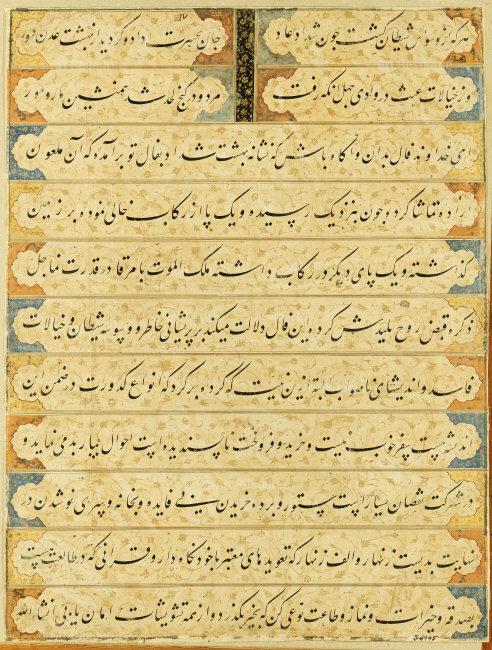 هر که از وسواس شیطان گشت چون شداد عاد جان بحسرت داد و گردید از بهشت عدن دور
وز خیالات عبث در وادی جهل آنکه رفت شد همنشین مار و مور
ای خداوند فال بدان و آگاه باش که نشانه بهشت شداد بفال تو برآمده که آن ملعون
اراده تماشا کرد و چون بنزدیک رسیده و یک پا از رکاب خالی نموده بر زمین
گذاشته و یک پای دیگر در رکاب داشته ملک الموت بامر قادر قدرت نما جل
ذکره قبض روح پلیدش کرده این فال دلالت میکند بر پریشانی خاطر و وسوسه شیطان و خیالات
فاسد و اندیشهای ناصواب البته ازین نیت که کرده برگرد که انواع کدورت در ضمن این
اندیشه هست سفر خوب نیست و خرید و فروخت ناپسندیده است احوال بیمار بد می نماید و
در شرکت نقصان بسیار است ستور و برده خریدن بی فایده و بخانه و سرای نو شدن در
نهایت بدیست زنهار و الف زنهار که تعویذهای معتبر با خود نگاه دار و قرانی که در طالعت هست
بصدقه و خیرات و نماز و طاعت نوعی کن که بخیر بگذرد و از همه تشویشات امان یابی انشاالله